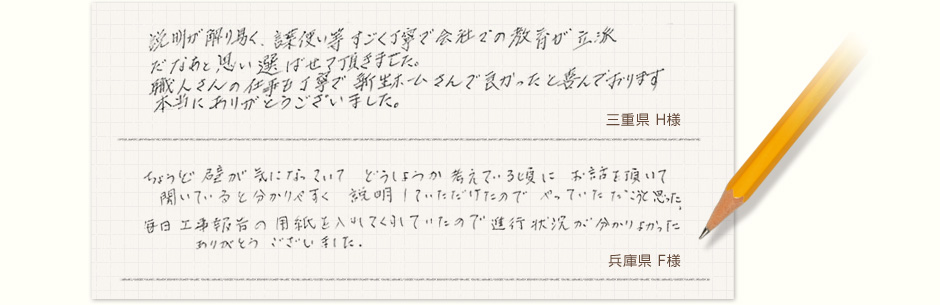 説明が解り易く、言葉使い等すごく丁寧で会社での教育が立派
だなあと思い選ばせて頂きました。
職人さんの仕事も丁寧で新生ホームさんで良かったと喜んでおります
本当にありがとうございました。
三重県 H様
ちょうど壁が気になっていて どうしようか考えている頃に お話を頂いて
聞いていると分かりやすく 説明していただけたので やっていただこうと思った。
毎日工事報告の用紙を入れてくれていたので進行状況が分かりよかった
ありがとうございました.
兵庫県 F様